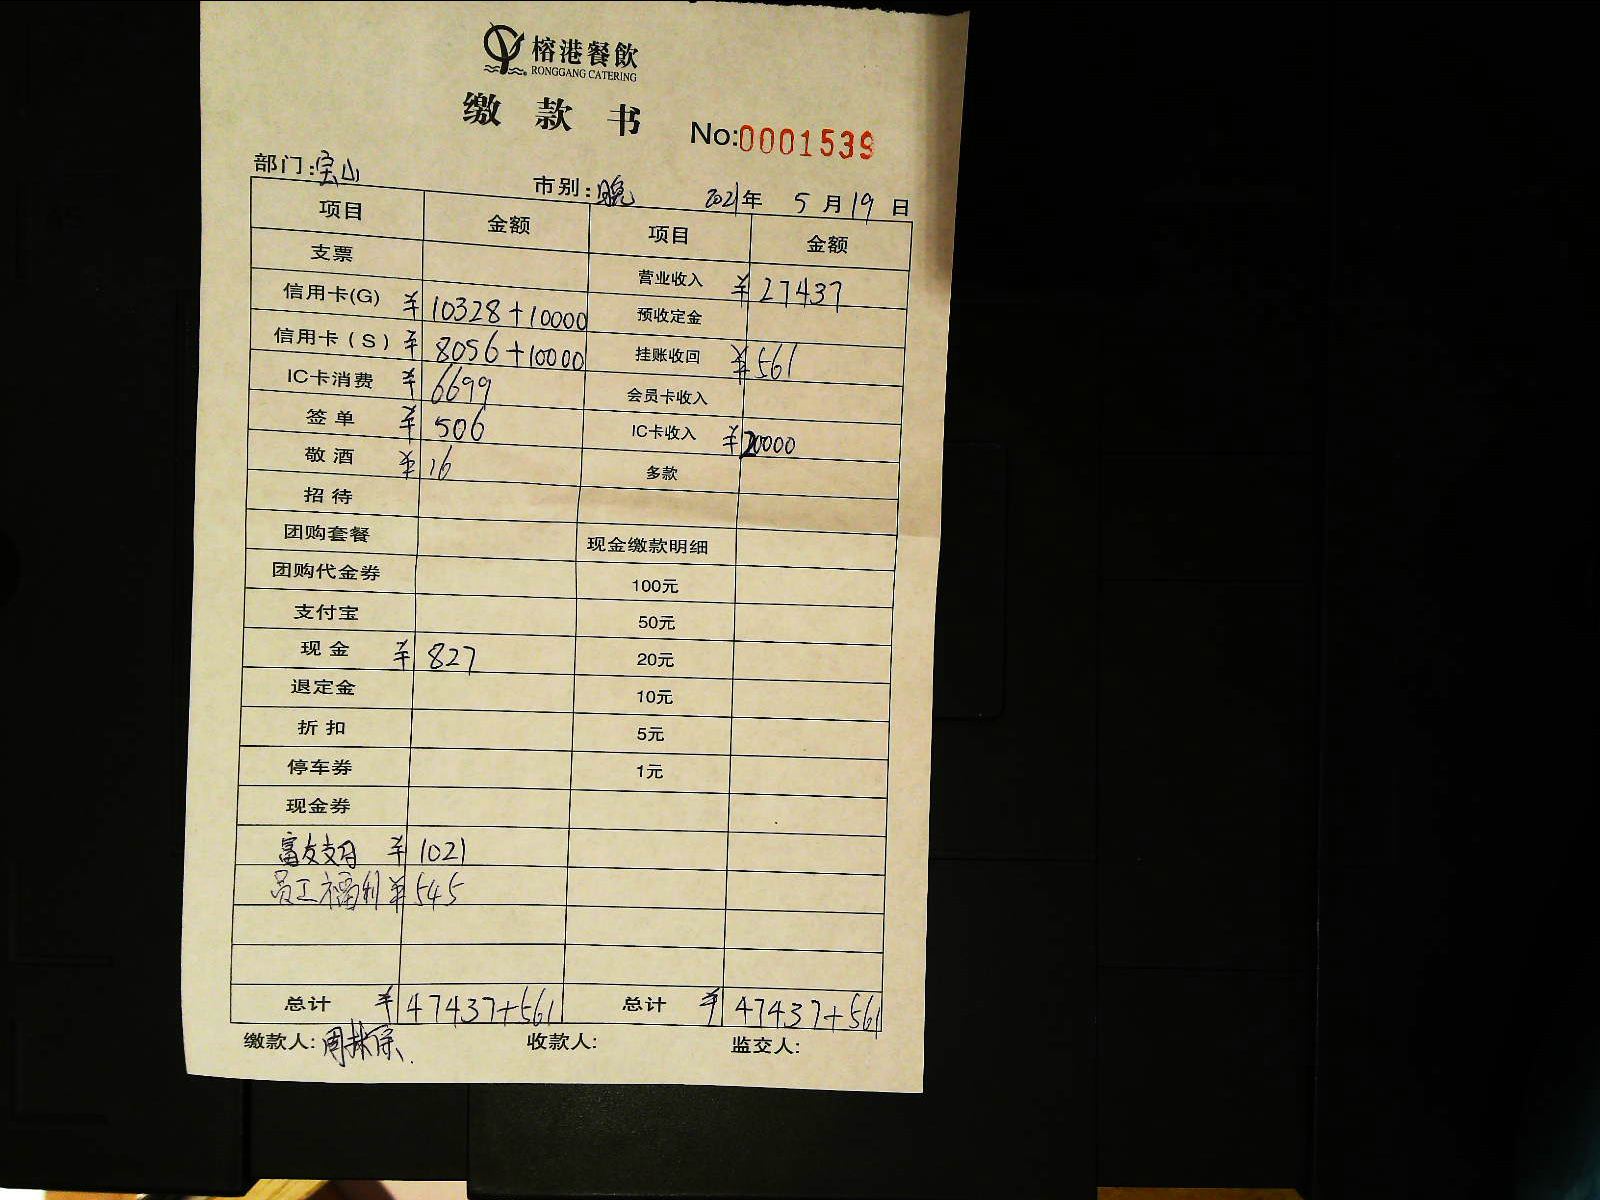 榕港餐飲
RONGGANG CATERING
缴款书
No:0001539
部门:宝山 市别:晚 2021年 5月19日
项目 金额 项目 金额
支票 营业收入 ¥27437
信用卡(G) ¥10328+10000 预收定金
信用卡(S) ¥8056+10000 挂账收回 ¥561
IC卡消费 ¥6699 会员卡收入
签单 ¥506 IC卡收入 ¥20000
敬酒 ¥16 多款
招待
团购套餐 现金缴款明细
团购代金券 100元
支付宝 50元
现金 ¥827 20元
退定金 10元
折扣 5元
停车券 1元
现金券
富友支付 ¥1021
员工福利 ¥545
总计 ¥47437+561 总计 ¥47437+561
缴款人:周 收款人: 监交人: